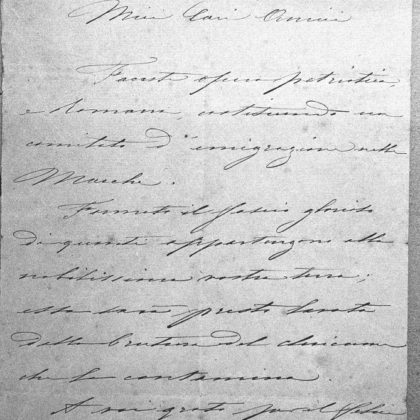 Miei Cari Amici
Faceste opera patriotica,
e Romana, costituendo un
comitato d'emigrazione nelle
Marche.
Formate il fascio glorioso
di quanti appartengono alla
nobilissima vostra terra;
essa sarà presto lavata
dalle brutture del chiericume
che la contamina.
A voi grato per il